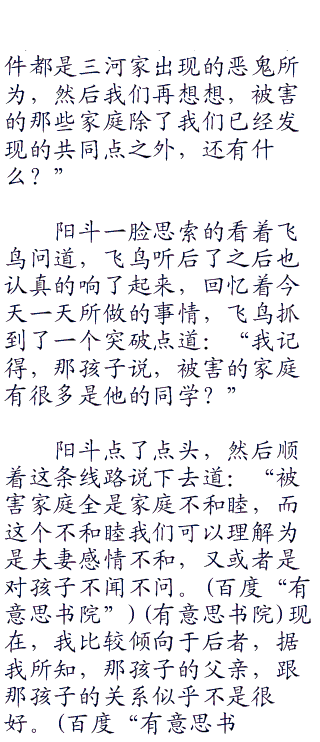 件都是三河家出现的恶鬼所
为，然后我们再想想，被害
的那些家庭除了我们已经发
现的共同点之外，还有什
么？”
阳斗一脸思索的看着飞
鸟问道，飞鸟听后了之后也
认真的响了起来，回忆着今
天一天所做的事情，飞鸟抓
到了一个突破点道：“我记
得，那孩子说，被害的家庭
有很多是他的同学？”
阳斗点了点头，然后顺
着这条线路说下去道：“被
害家庭全是家庭不和睦，而
这个不和睦我们可以理解为
是夫妻感情不和，又或者是
对孩子不闻不问。(百度“有
意思书院”)(有意思书院)现
在，我比较倾向于后者，据
我所知，那孩子的父亲，跟
那孩子的关系似乎不是很
好。(百度“有意思书